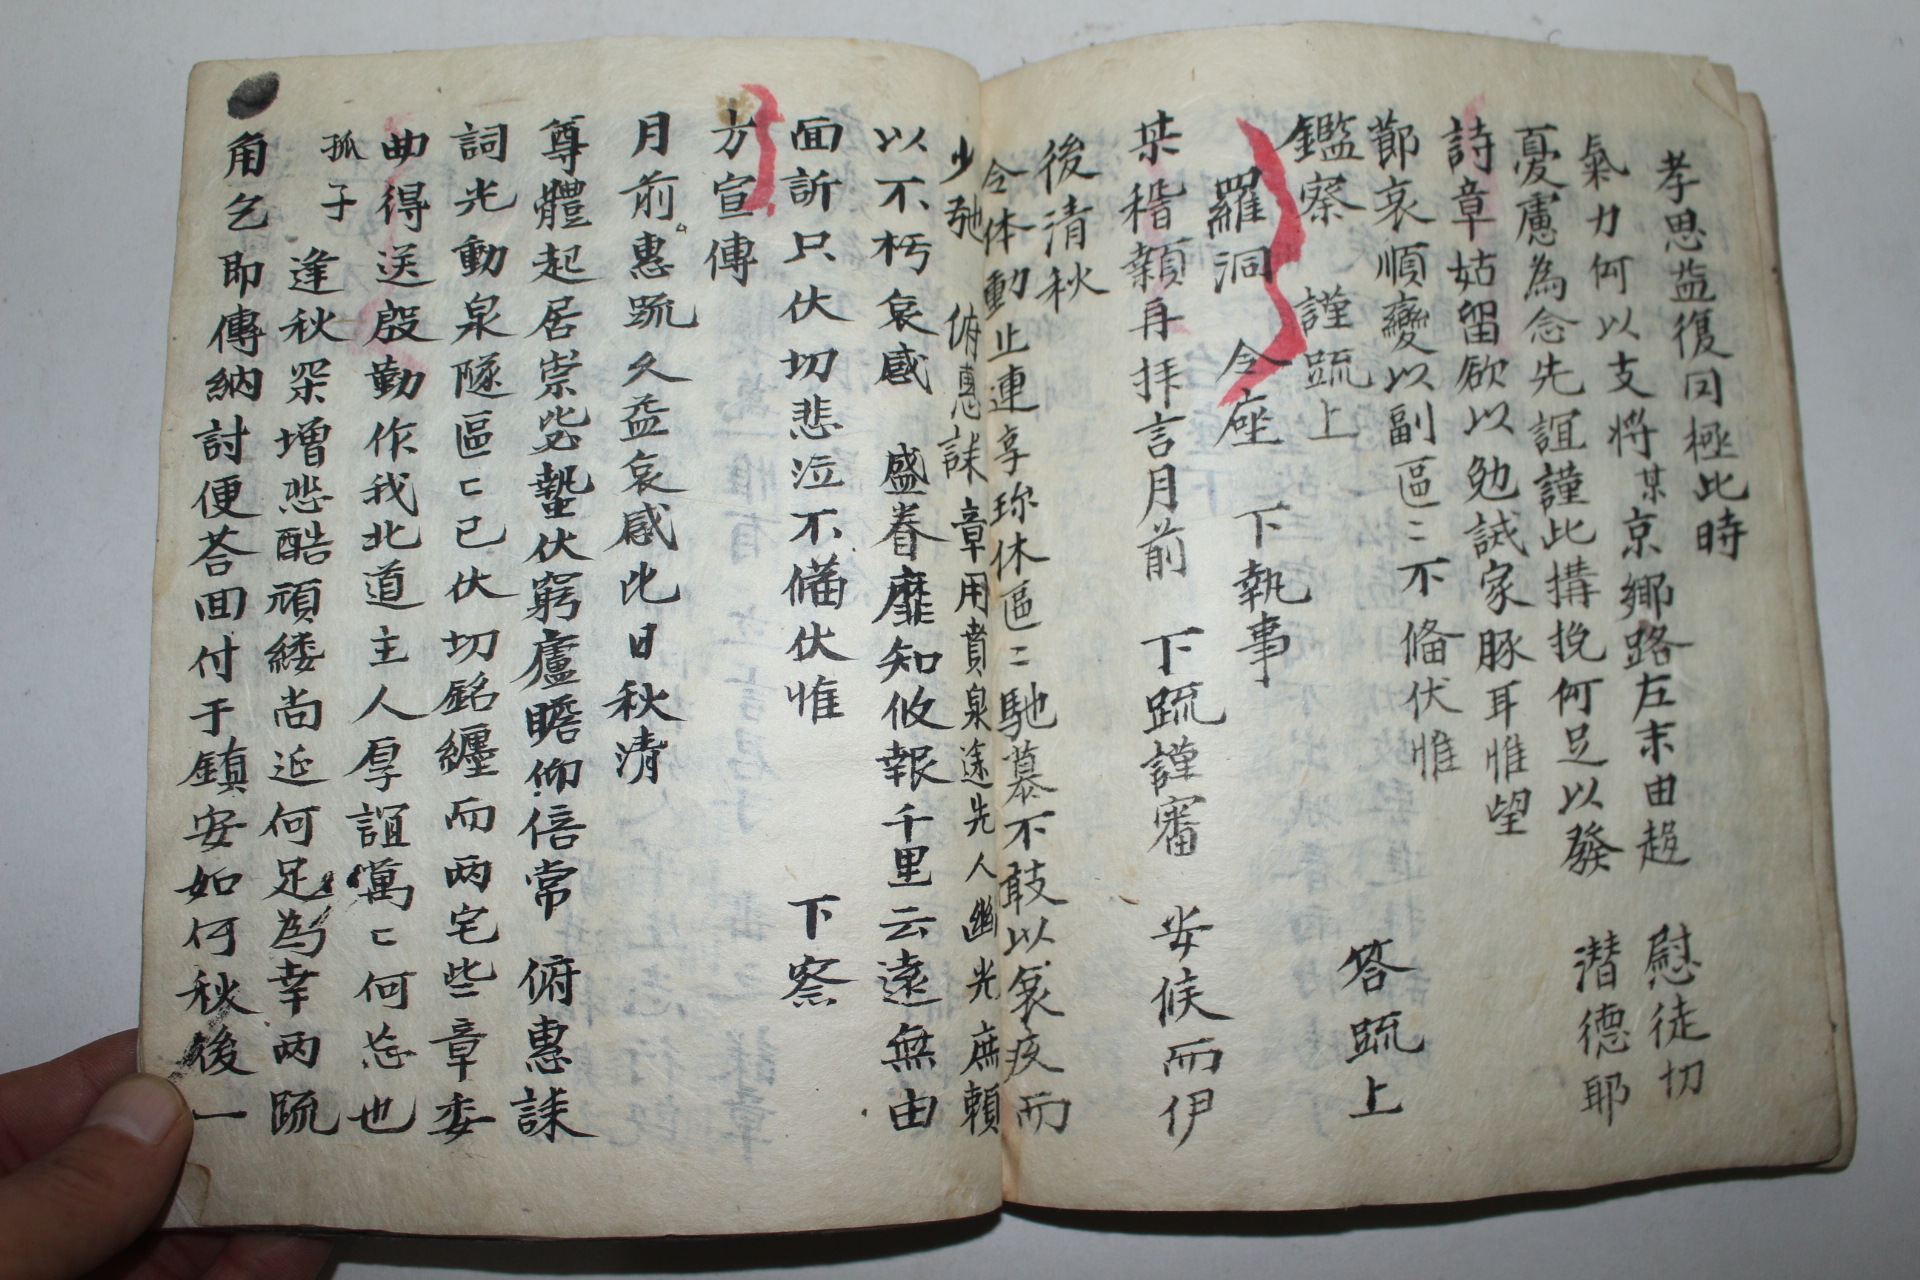 孝思益復罔極此時
氣力何以支將某京鄉路左末由趨 慰徒切
憂慮為念先誼謹此搆挽何足以發 潜德耶
詩章姑留欲以勉誡家豚耳惟望
節哀順變以副區〻不俻伏惟
鑑察 謹䟽上 答䟽上
羅洞 令座 下執事
某稽顙再拜言月前 下䟽謹審 安候而伊
後清秋
令体動止連享珎休區〻馳慕不敢以衰疚而
少弛 俯惠誄章用賁泉途先人幽光庶賴
以不朽哀感 盛眷靡知攸報千里云遠無由
面訴只伏切悲泣不備伏惟 下察
方宣傳
月前惠䟽久益哀感比日秋清
尊體起居崇毖蟄伏窮廬瞻仰倍常 俯惠誄
詞光動泉隧區〻已伏切銘纏而兩宅些章委
曲得送殷勤作我北道主人厚誼萬〻何忘也
孤子 逢秋罙增悲酷頑縷尚延何足為幸兩䟽
角乞即傳納討便荅回付于鎮安如何秋後一